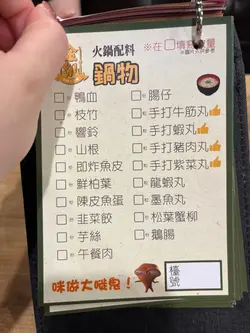 火鍋配料
鍋物
※在□填寫數量
□ 鴨血
□ 枝竹
□ 響鈴
□ 山根
□ 即炸魚皮
□ 鮮柏葉
□ 陳皮魚蛋
□ 韭菜餃
□ 芋絲
□ 午餐肉
□ 腸仔
□ 手打牛筋丸
□ 手打蝦丸
□ 手打豬肉丸
□ 手打紫菜丸
□ 龍蝦丸
□ 墨魚丸
□ 松葉蟹柳
□ 鵝腸
咪做大嘥鬼!
檯號